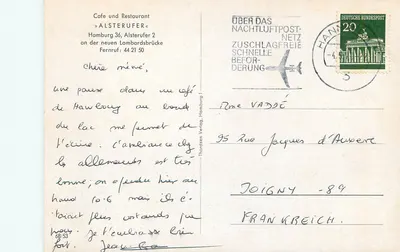 Cafe und Restaurant
»ALSTERUFER«
Hamburg 36, Alsterufer 2
an der neuen Lombardsbrücke
Fernruf: 44 21 50
ÜBER DAS
NACHTLUFTPOST-
NETZ
ZUSCHLAGFREIE
SCHNELLE
BEFÖR-
DERUNG
HANN
DEUTSCHE BUNDESPOST
20
une pause dans un café
de Hambourg au bord
du lac me permet de
t'écrire. L'ambiance chez
les allemands est très
bonne; on a perdu hier au
hand 10-6 mais ils é-
taient plus costauds que
nous. Je t'embrasse bien
fort. Jean
Rose
95 Rue Jacques d'Auxerre
JOIGNY - 89
FRANKREICH.